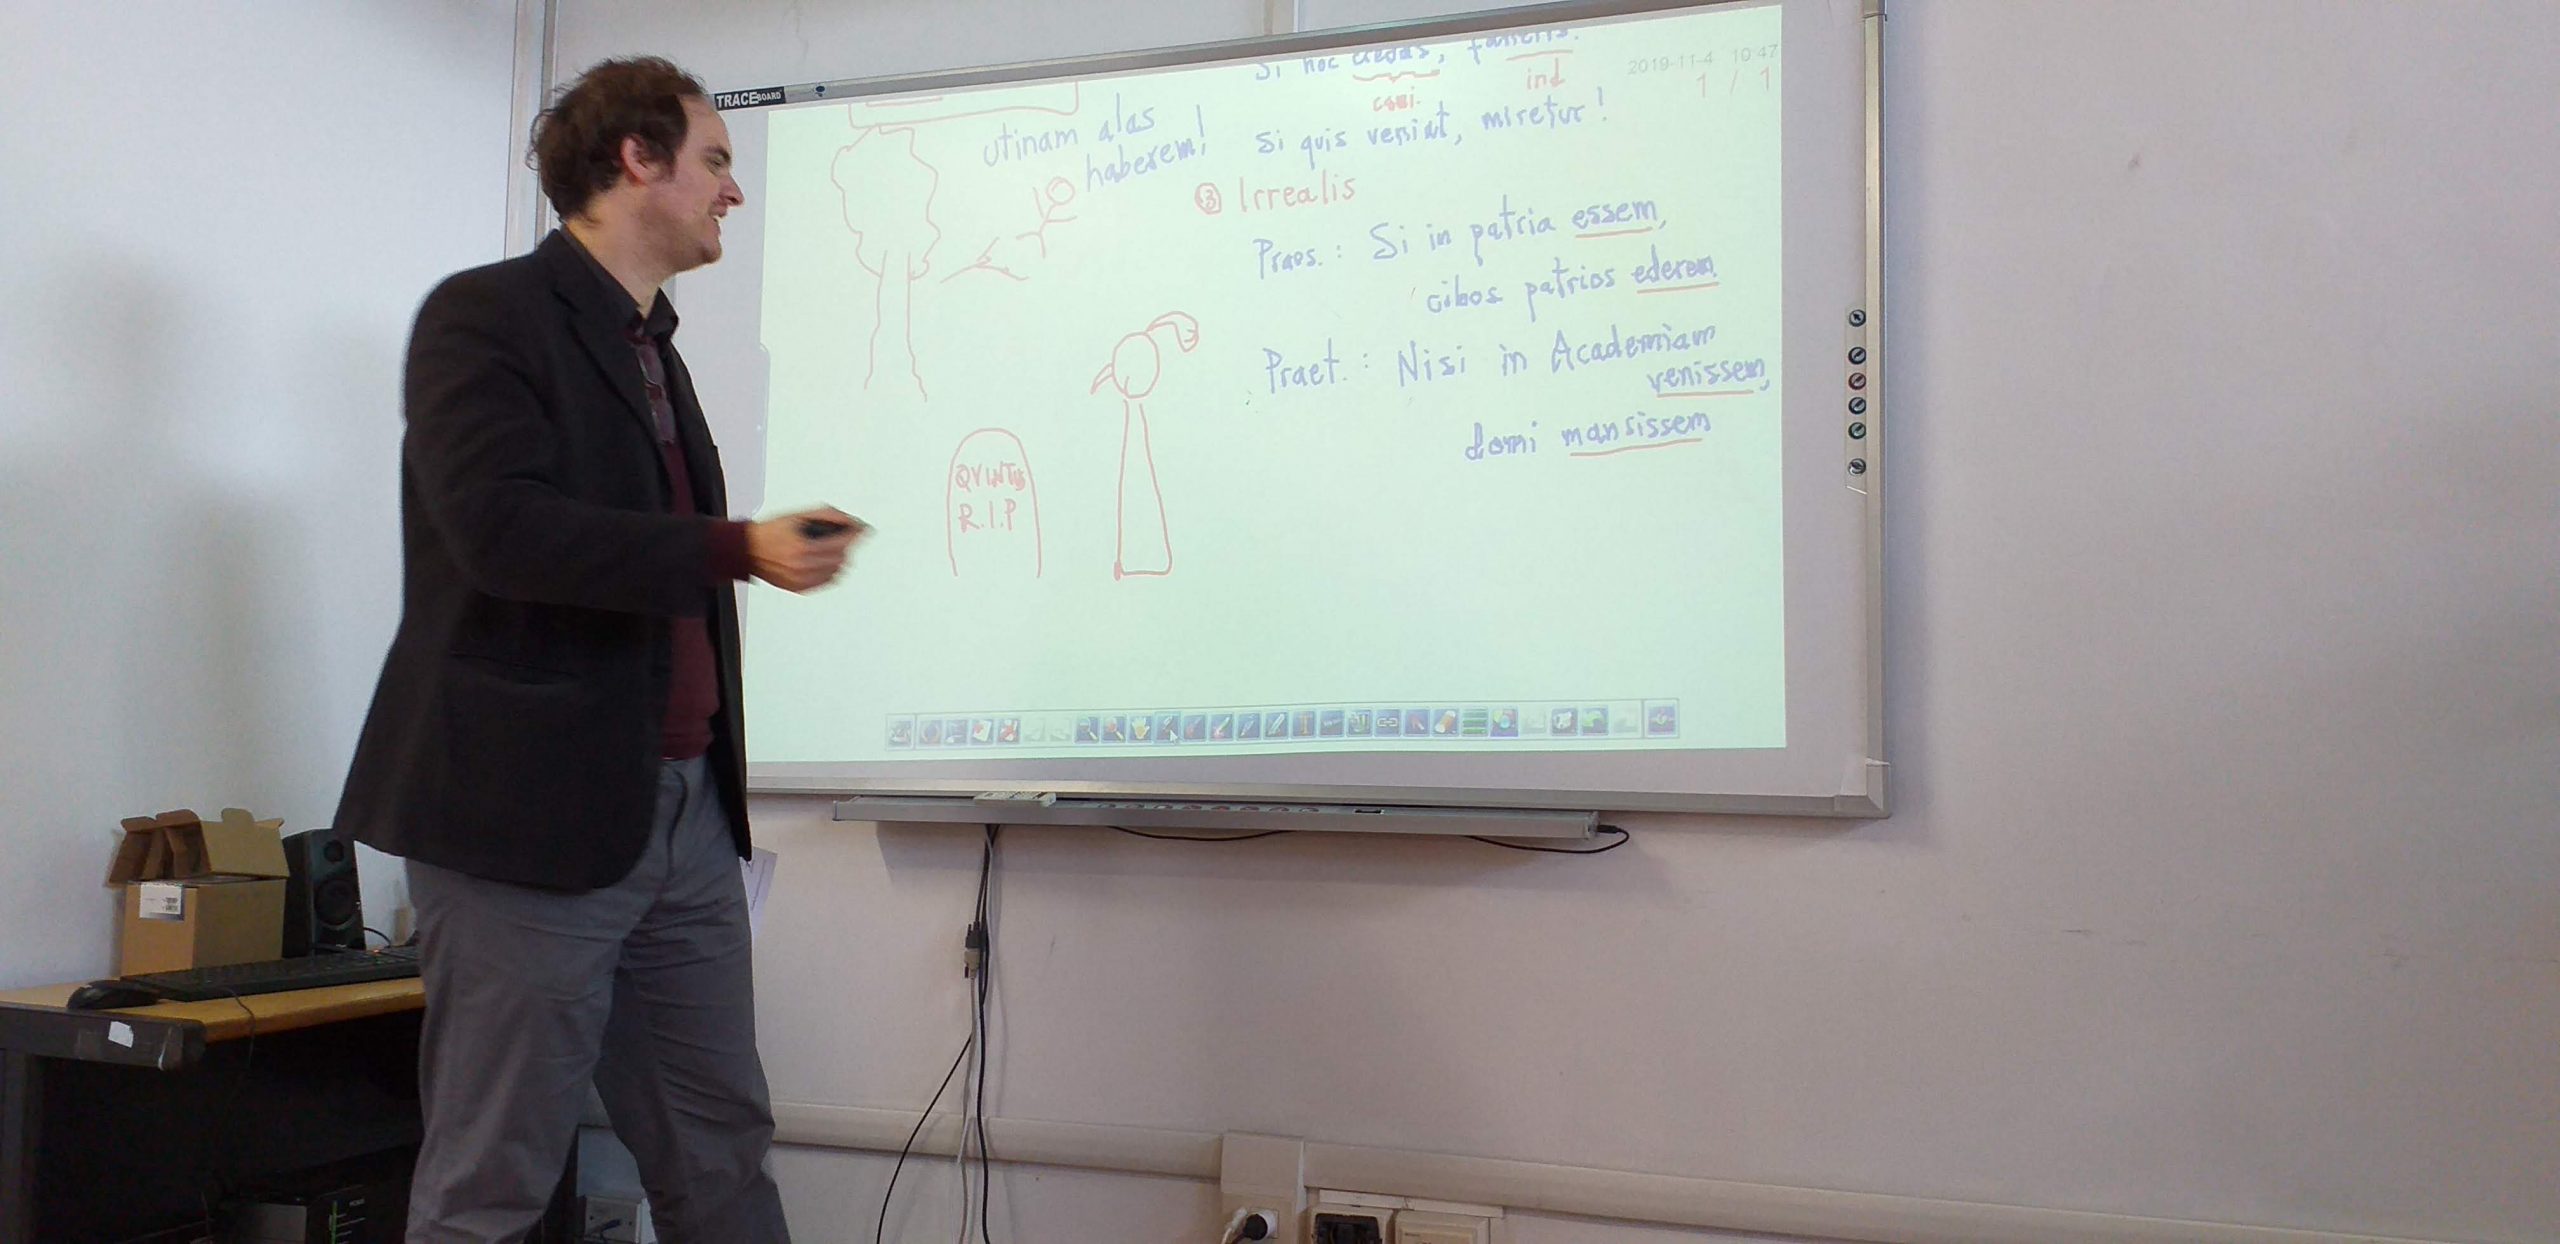 TRACEBOARD
2019-11-4 10:47
1 / 1
utinam alas
haberem!
Si hoc credas, falleris.
coni.
ind
Si quis veniat, miretur!
③ Irrealis
Praes.: Si in patria essem,
cibos patrios ederem
Praet.: Nisi in Academiam
venissem,
domi mansissem
QVINTUS
R.I.P